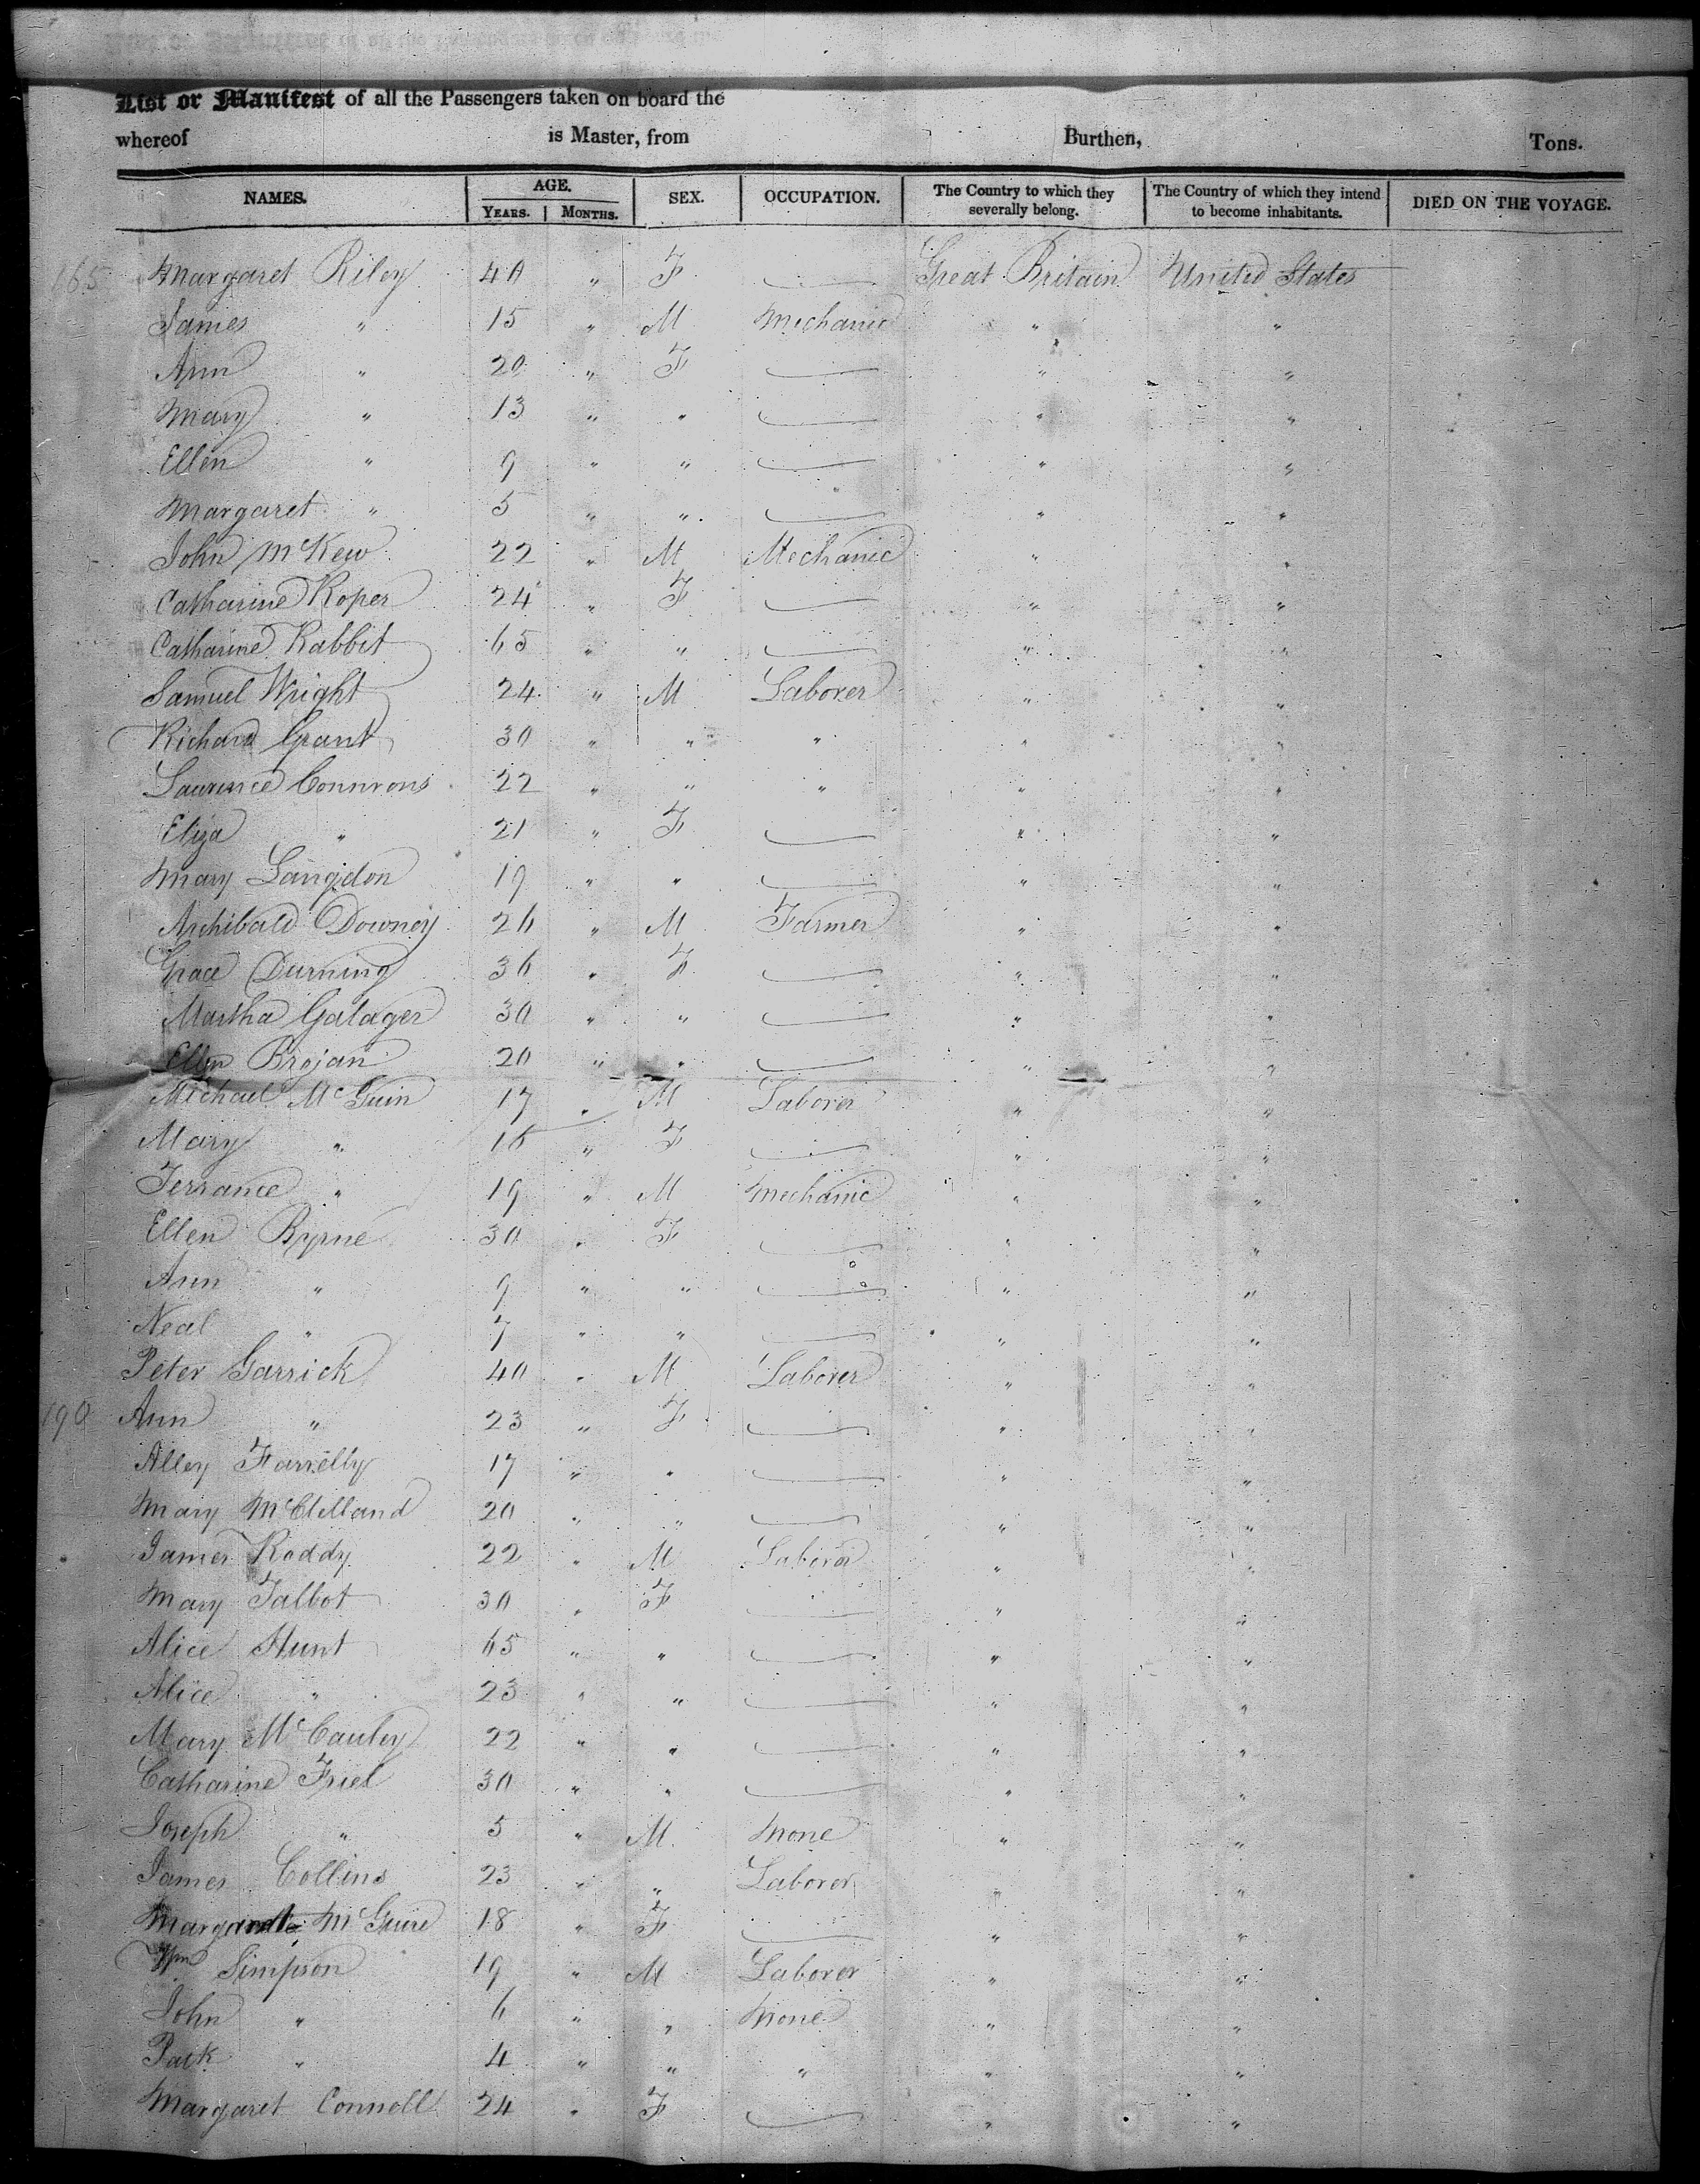 List or Manifest of all the Passengers taken on board the
whereof is Master, from Burthen, Tons.
NAMES. AGE. YEARS. MONTHS. SEX. OCCUPATION. The Country to which they severally belong. The Country of which they intend to become inhabitants. DIED ON THE VOYAGE.
165 Margaret Riley 40 " F — Great Britain United States
James " 15 " M Mechanic " "
Ann " 20 " F — " "
Mary " 13 " " — " "
Ellen " 9 " " — " "
Margaret " 5 " " — " "
John McKew 22 " M Mechanic " "
Catharine Roper 24 " F — " "
Catharine Rabbit 65 " " — " "
Samuel Wright 24 " M Laborer " "
Richard Grant 30 " " " " "
Laurence Connrons 22 " " " " "
Eliza " 21 " F — " "
Mary Langdon 19 " " — " "
Archibald Downey 26 " M Farmer " "
Grace Durning 36 " F — " "
Martha Galager 30 " " — " "
Ellen Brojan 20 " " — " "
Michael McGuin 17 " M Laborer " "
Mary " 16 " F — " "
Terrance " 19 " M Mechanic " "
Ellen Byrne 30 " F — " "
Ann " 9 " " — " "
Neal " 7 " " — " "
Peter Garrick 40 " M Laborer " "
190 Ann " 23 " F — " "
Alley Farrelly 17 " " — " "
Mary McClelland 20 " " — " "
James Roddy 22 " M Laborer " "
Mary Talbot 30 " F — " "
Alice Hunt 65 " " — " "
Alice " 23 " " — " "
Mary McCauley 22 " " — " "
Catharine Friel 30 " " — " "
Joseph " 5 " M None " "
James Collins 23 " " Laborer " "
Margaret McGuire 18 " F — " "
Wm Simpson 19 " M Laborer " "
John " 6 " " None " "
Patk " 4 " " " " "
Margaret Connell 24 " F — " "